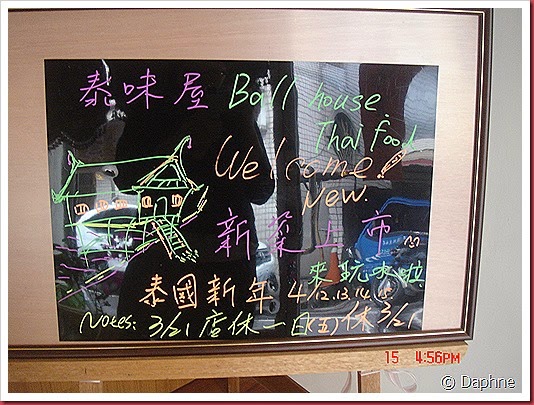 泰味屋 Ball house.
Thai Food
Welcome!
New.
新菜上市
來玩水啦
泰國新年 4/12.13.14.15.
Notes: 3/21 店休一日(五)休 3/21
15 4:56PM
© Daphne